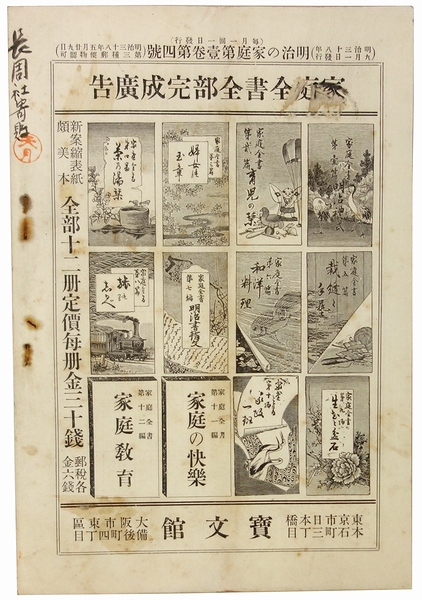 (每月一回一日發行)
明治三十八年
九月一日發行
明治の家庭第壹卷第四號
明治三十八年五月廿九日
第三種郵便物認可
家庭全書全部完成廣告
長周社寄贈
新案縮表紙
頗美本
全部十二册定價每册金三十錢
郵税各
金六錢
家庭全書
第壹篇
家庭全書
第貳篇
育兒の栞
家庭全書
玉章
茶の湯栞
家庭全書
第五篇
裁縫
家庭全書
第六編
和洋
料理
家庭全書
第七編
家庭全書
第九編
生花と盆石
一班
家庭全書
第十一編
家庭の快樂
家庭全書
第十二編
家庭教育
東京市日本橋
本石町三丁目
寶文館
大阪市東區
備後町四丁目